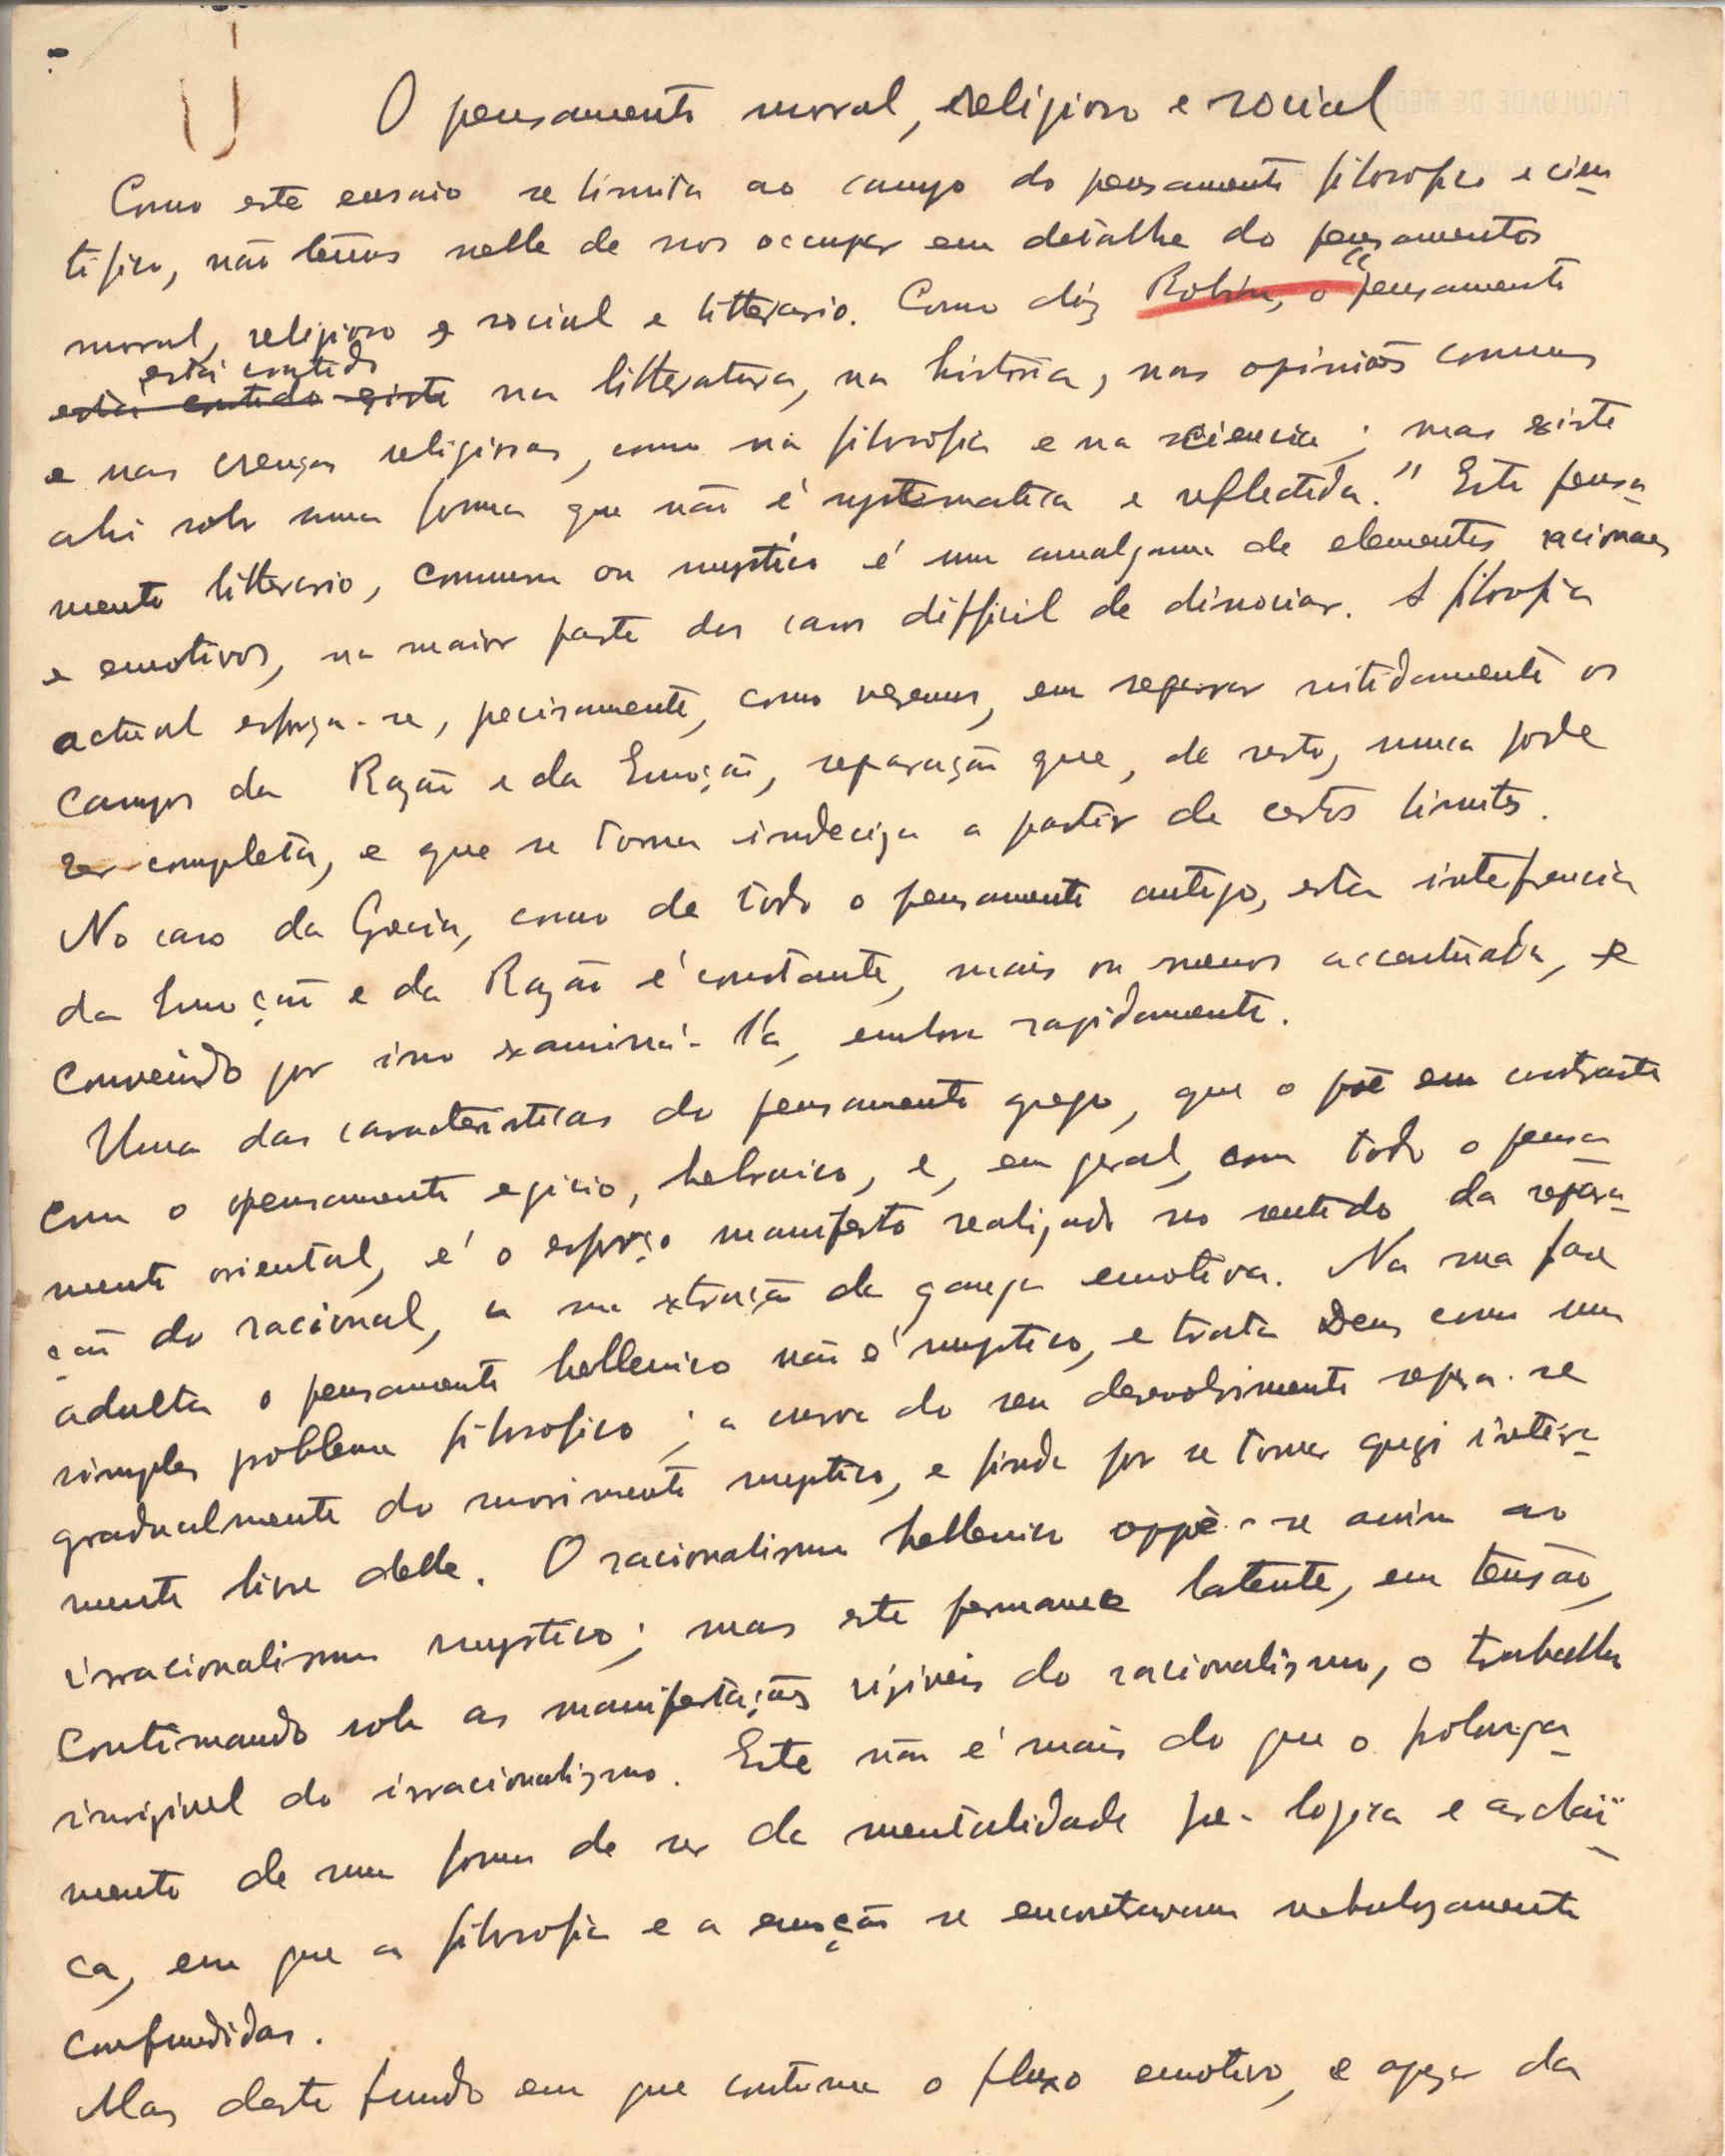 O pensamento moral, religioso e social
Como este ensaio se limita ao campo do pensamento filosofico e cien
tifico, não temos nelle de nos occupar em detalhe do pensamentos
moral, religioso e social e litterario. Como diz Robin, o "pensamento
está contido
está contido existe na litteratura, na historia, nas opiniões communs
e nas crenças religiosas, como na filosofia e na sciencia; mas existe
ahi sob uma forma que não é systematica e reflectida." Este pensa
mento litterario, commum ou mystico é um amalgama de elementos racionaes
e emotivos, na maior parte dos casos difficil de dissociar. A filosofia
actual esforça-se, precisamente, como veremos, em separar nitidamente os
campos da Razão e da Emoção, separação que, de resto, nunca pode
ser completa, e que se torna indeciza a partir de certos limites.
No caso da Grecia, como de todo o pensamento antigo, esta interferencia
da Emoção e da Razão é constante, mais ou menos accentuada, e
convindo por isso examiná-la, embora rapidamente.
Uma das caracteristicas do pensamento grego, que o põe em contraste
com o pensamento egicio, hebraico, e, em geral, com todo o pensa
mento oriental, é o esforço manifesto realizado no sentido da separa
ção do racional, a sua extração da ganga emotiva. Na sua fase
adulta o pensamento hellenico não é mystico, e trata Deus como um
simples problema filosofico; a curva do seu desenvolvimento separa-se
gradualmente do movimento mystico, e finda por se tornar quazi inteira
mente livre delle. O racionalismo hellenico oppõe-se assim ao
irracionalismo mystico; mas este permanece latente, em tensão,
continuando sob as manifestações vizíveis do racionalismo, o trabalho
invizivel do irracionalismo. Este não é mais do que o prolonga
mento de uma forma de ser da mentalidade pre-logica e archaï
ca, em que a filosofia e a emoção se encontravam nebulozamente
confundidas.
Mas deste fundo em que continua o fluxo emotivo, e apezar da